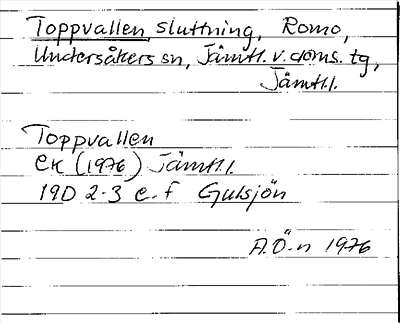 Toppvallen sluttning, Romo,
Undersåkers sn, Jämtl. v. doms. tg,
Jämtl.l.
Toppvallen
ek (1976) Jämtl.l.
19D 2-3 e-f Gulsjön
A.Ö-n 1976